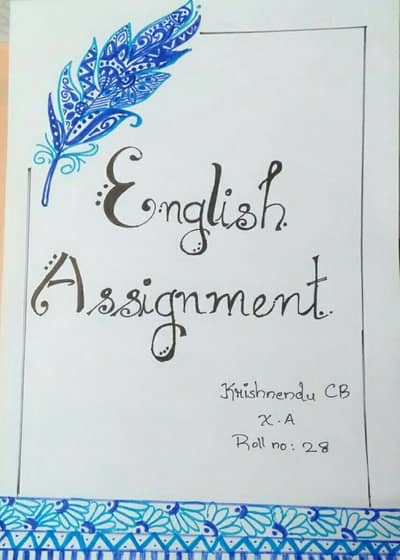 English
Assignment.
Krishnendu CB
X.A
Roll no: 28